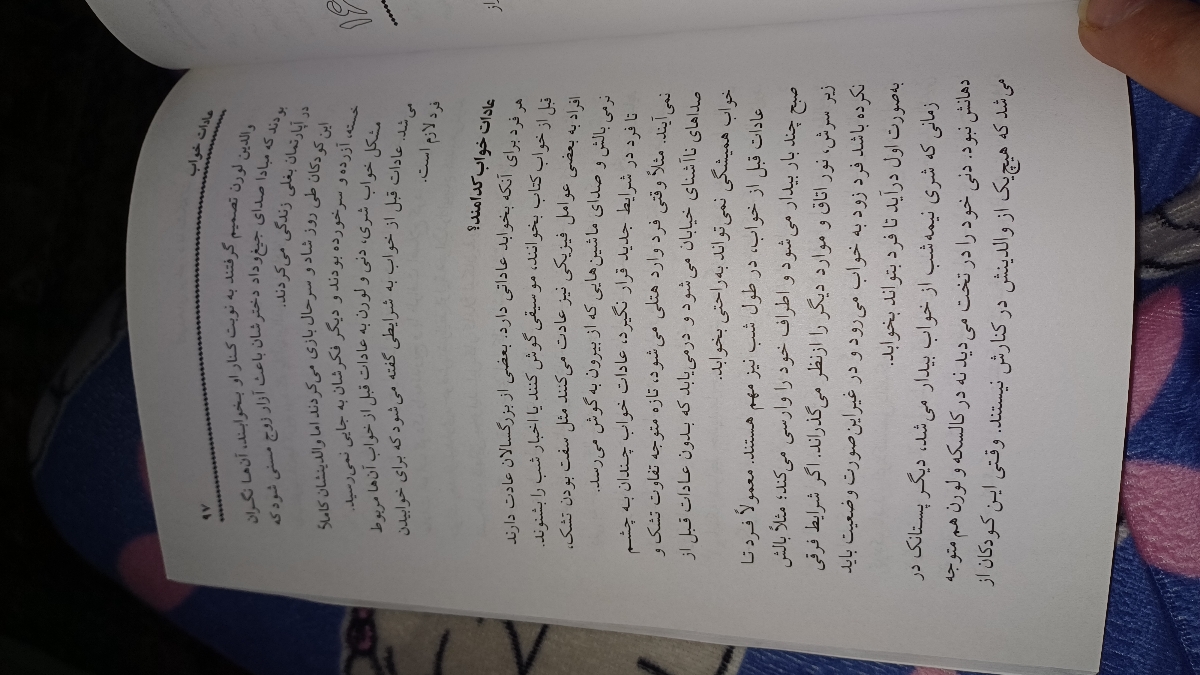 عادات خواب
۹۷
والدین لورن تصمیم گرفتند به نوبت کنار او بخوابند. آن‌ها نگران
بودند که مبادا صدای جیغ‌وداد دخترشان باعث آزار زوج مسنی شود که
در آپارتمان بغلی زندگی می‌کردند.
این کودکان طی روز شاد و سرحال بازی می‌کردند اما والدینشان کاملاً
خسته، آزرده و سرخورده بودند و دیگر فکرشان به جایی نمی‌رسید.
مشکل خواب شری، دنی و لورن به عادات قبل از خواب آن‌ها مربوط
می‌شد. عادات قبل از خواب به شرایطی گفته می‌شود که برای خوابیدن
فرد لازم است.
عادات خواب کدامند؟
هر فرد برای آنکه بخوابد عاداتی دارد. بعضی از بزرگسالان عادت دارند
قبل از خواب کتاب بخوانند، موسیقی گوش کنند یا اخبار شب را بشنوند.
افراد به بعضی عوامل فیزیکی نیز عادت می‌کنند مثل سفت بودن تشک،
نرمی بالش و صدای ماشین‌هایی که از بیرون به گوش می‌رسد.
تا فرد در شرایط جدید قرار نگیرد، عادات خواب چندان به چشم
نمی‌آیند. مثلاً وقتی فرد وارد هتلی می‌شود، تازه متوجه تفاوت تشک و
صداهای ناآشنای خیابان می‌شود و درمی‌یابد که بدون عادات قبل از
خواب همیشگی نمی‌تواند به‌راحتی بخوابد.
عادات قبل از خواب، در طول شب نیز مهم هستند. معمولاً فرد تا
صبح چند بار بیدار می‌شود و اطراف خود را وارسی می‌کند؛ مثلاً بالش
زیر سرش، نور اتاق و موارد دیگر را ازنظر می‌گذراند. اگر شرایط فرقی
نکرده باشد فرد زود به خواب می‌رود و در غیراین‌صورت وضعیت باید
به‌صورت اول درآید تا فرد بتواند بخوابد.
زمانی که شری نیمه‌شب از خواب بیدار می‌شد، دیگر پستانک در
دهانش نبود. دنی خود را در تخت می‌دید نه در کالسکه و لورن هم متوجه
می‌شد که هیچ‌یک از والدینش در کنارش نیستند. وقتی این کودکان از